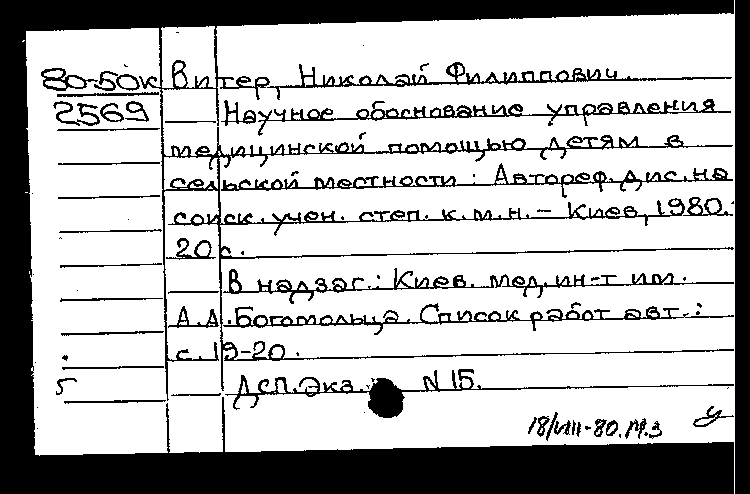 80-50к Витер, Николай Филиппович.
2569 Научное обоснование управления
медицинской помощью детям в
сельской местности : Автореф. дис. на
соиск. учен. степ. к.м.н. – Киев, 1980.
20 с.
В надзаг.: Киев. мед. ин-т им.
А.А. Богомольца. Список работ авт.:
с. 19-20.
5 Дсп. Экз. N 15.
18/VIII-80. М.З